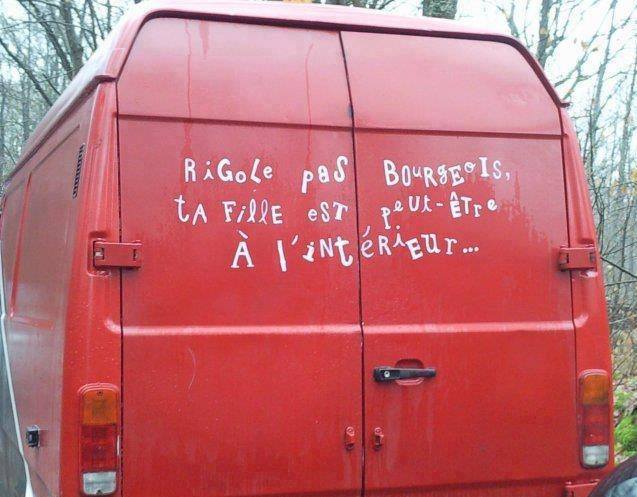 RiGoLe paS BOURGEOIS,
tA FiLLE eST peUt-ÊTre
À l'iNtéRiEUr...